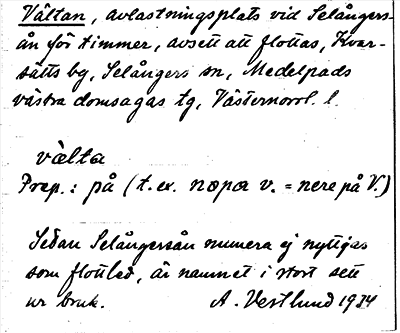 Vältan, avlastningsplats vid Selångers-
ån för timmer, avsett att flottas, Kvar-
sätts by, Selångers sn, Medelpads
västra domsagas tg, Västernorrl. l.
välta
Prep.: på (t. ex. nɒpɒ v. = nere på V.)
Sedan Selångersån numera ej nyttjas
som flottled, är namnet i stort sett
ur bruk. A. Vestlund 1934